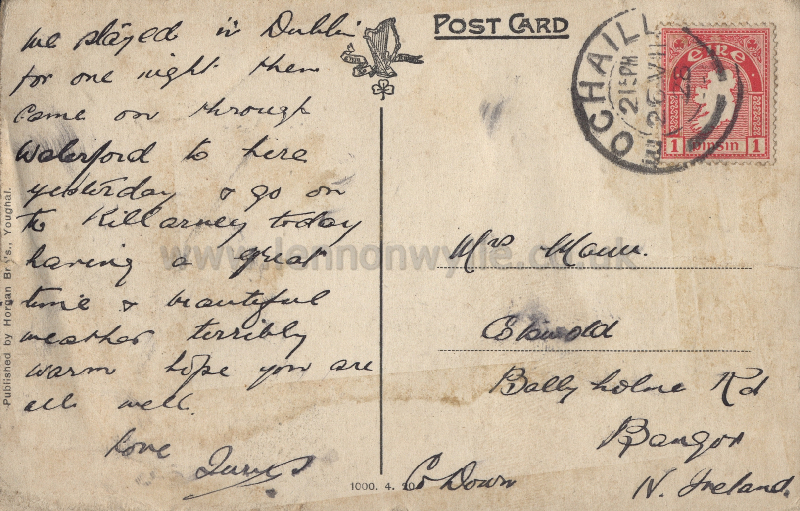 We stayed in Dublin
for one night then
came on through
Waterford to here
yesterday & go on
to Killarney today
having a great
time & beautiful
weather terribly
warm hope you are
all well.
Love
POST CARD
OCHAILL
215PM
26 VII
28
éire
1 pinsin 1
Mrs Mann.
Ballyholme Rd
Bangor
Co Down
N. Ireland.
Published by Horgan Bros., Youghal.
1000. 4. 20
www.lennonwylie.co.uk